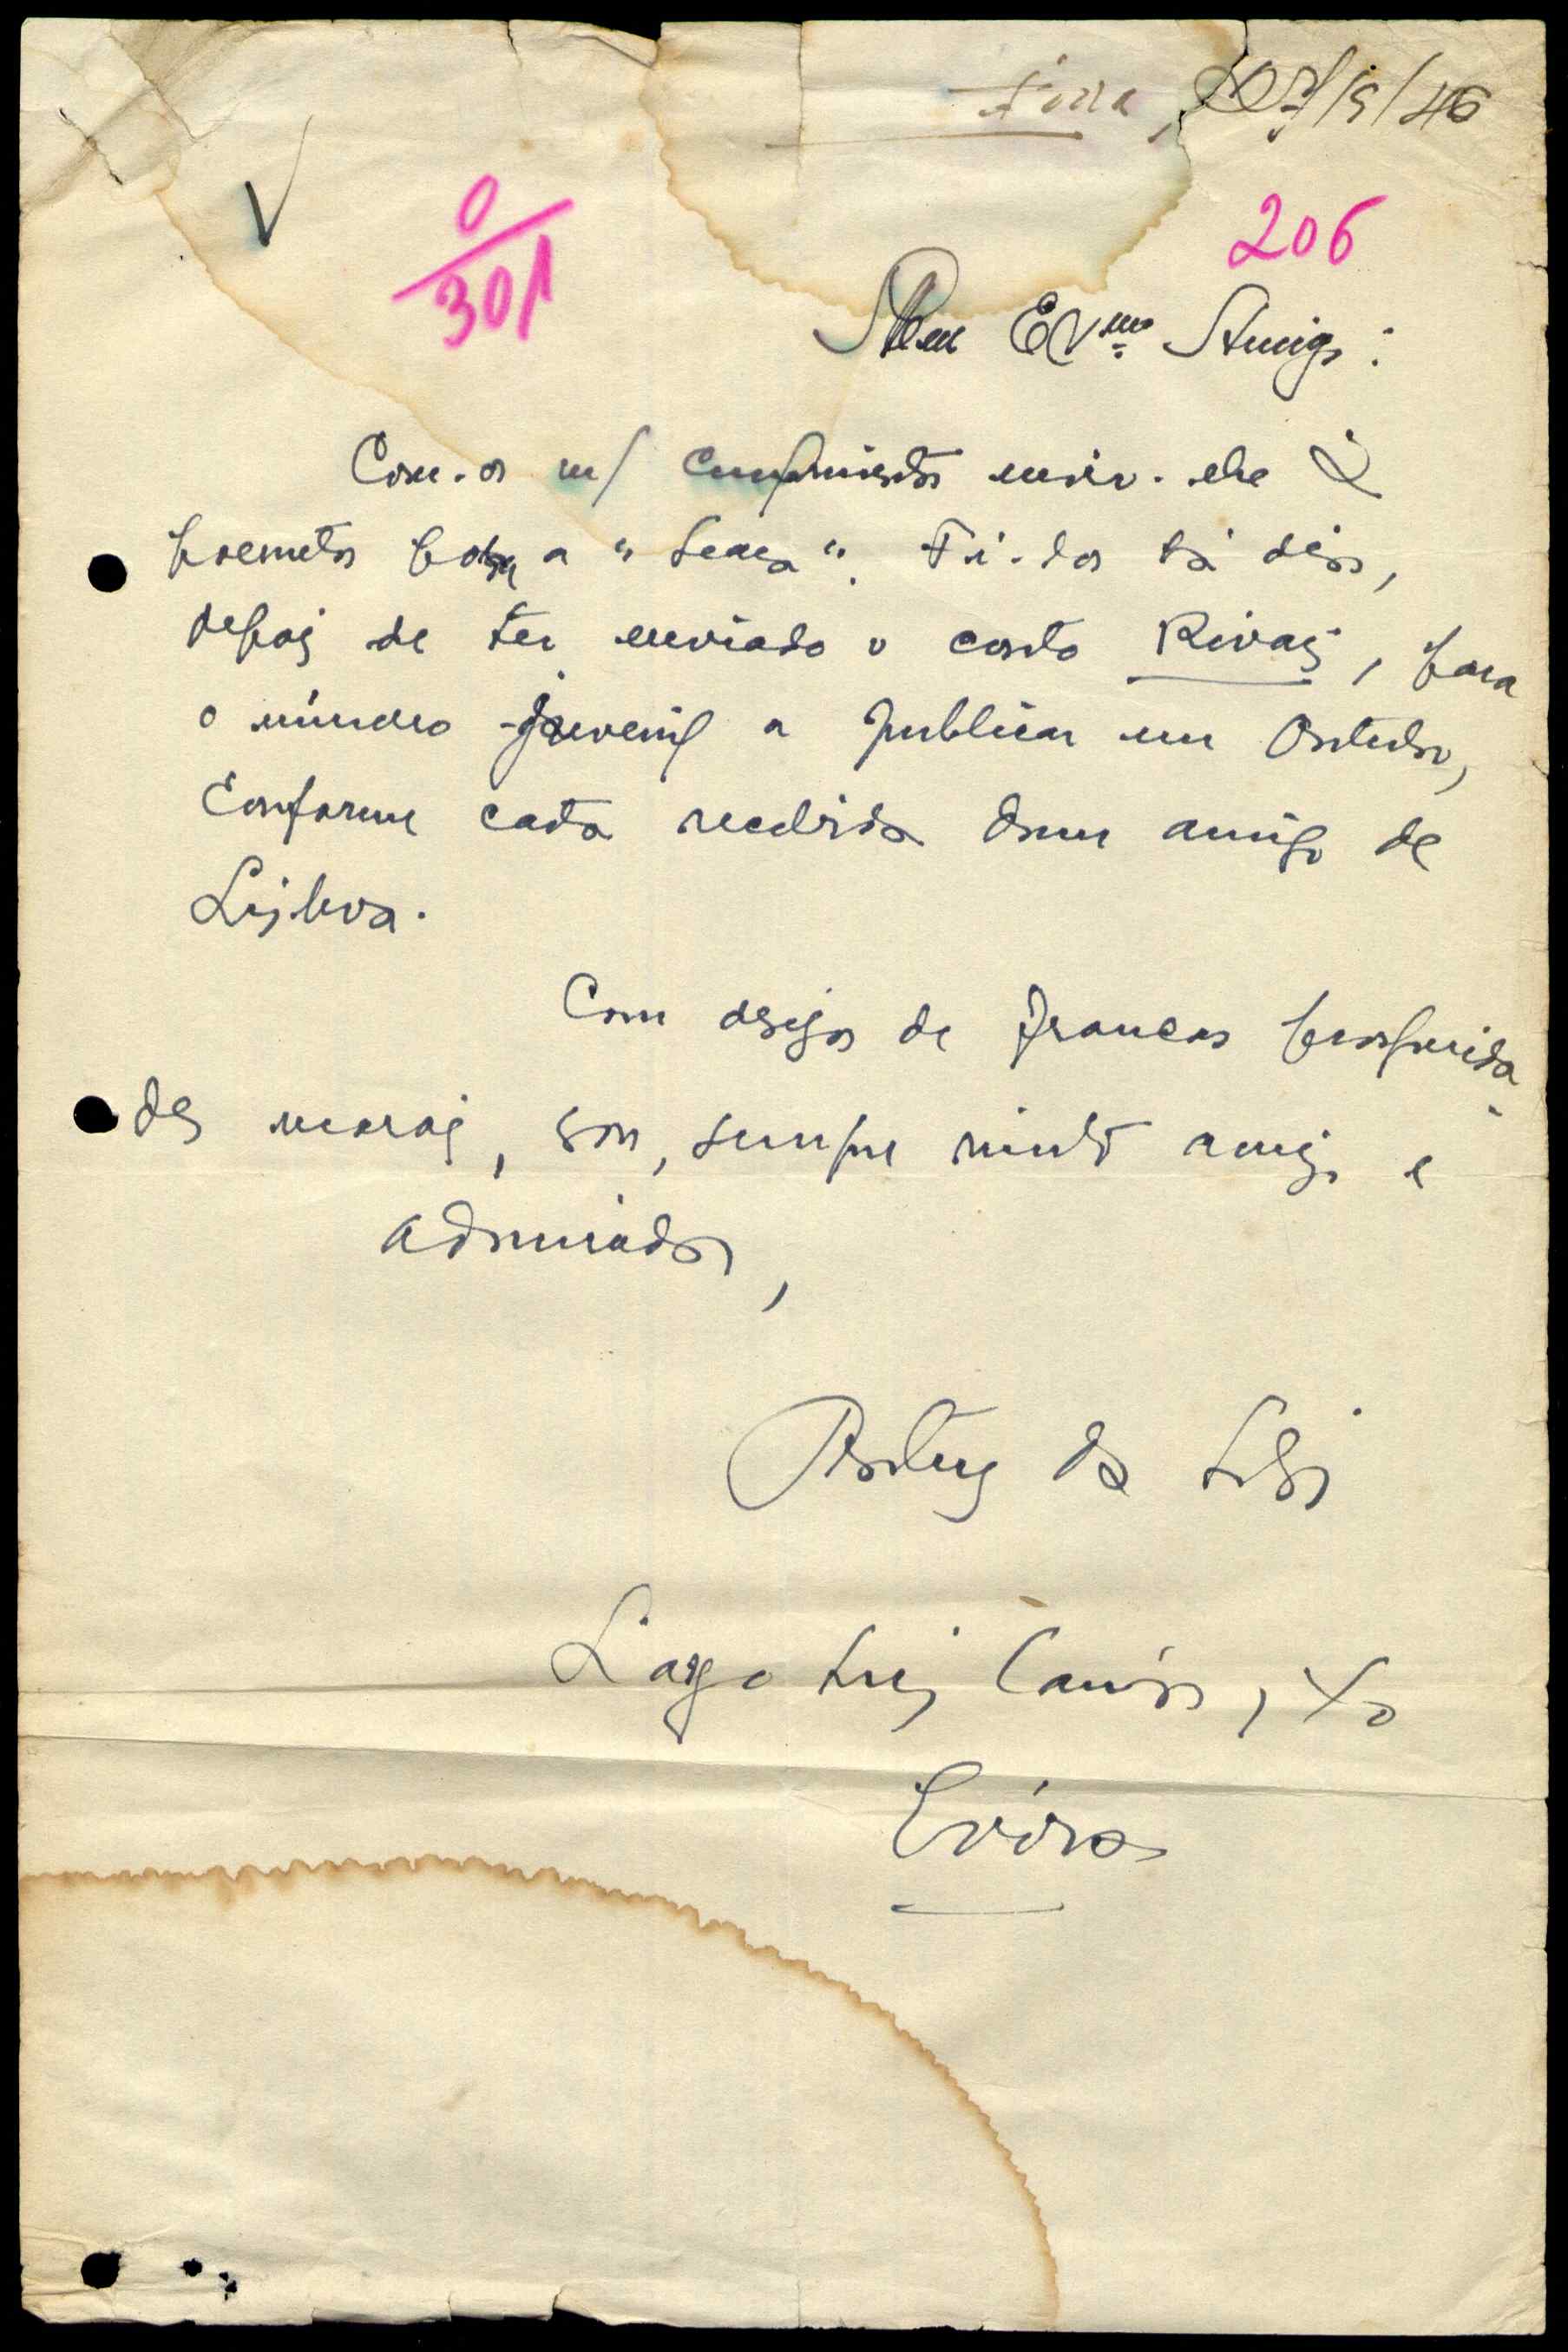 Évora, 27/9/46
206
0/301
Meu Exmo Amigo:
Com os m/ cumprimentos envio-lhe 2
poemetos para a "Seara". Fi-los há dias,
depois de ter enviado o conto Rivais, para
o número juvenil a publicar em Outubro,
conforme carta recebida dum amigo de
Lisboa.
Com desejos de francas prosperida-
des morais, sou, sempre muito amigo e
admirador,
da Silva
Largo Luis Camões,
Évora